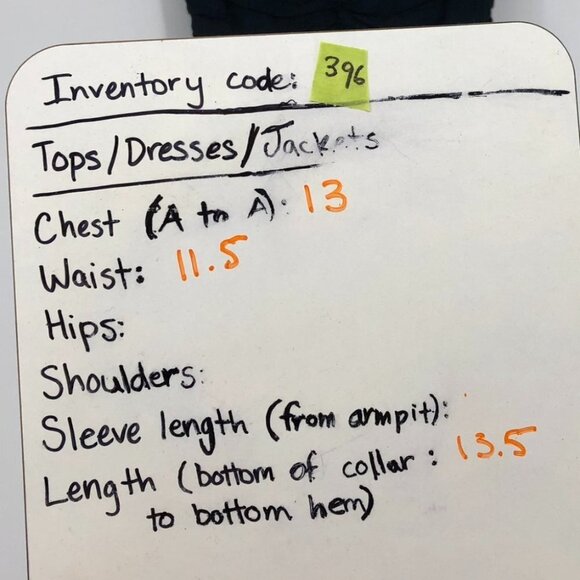 Inventory code: 396
Tops/Dresses/Jackets
Chest (A to A): 13
Waist: 11.5
Hips:
Shoulders:
Sleeve length (from armpit):
Length (bottom of collar : 13.5
to bottom hem)